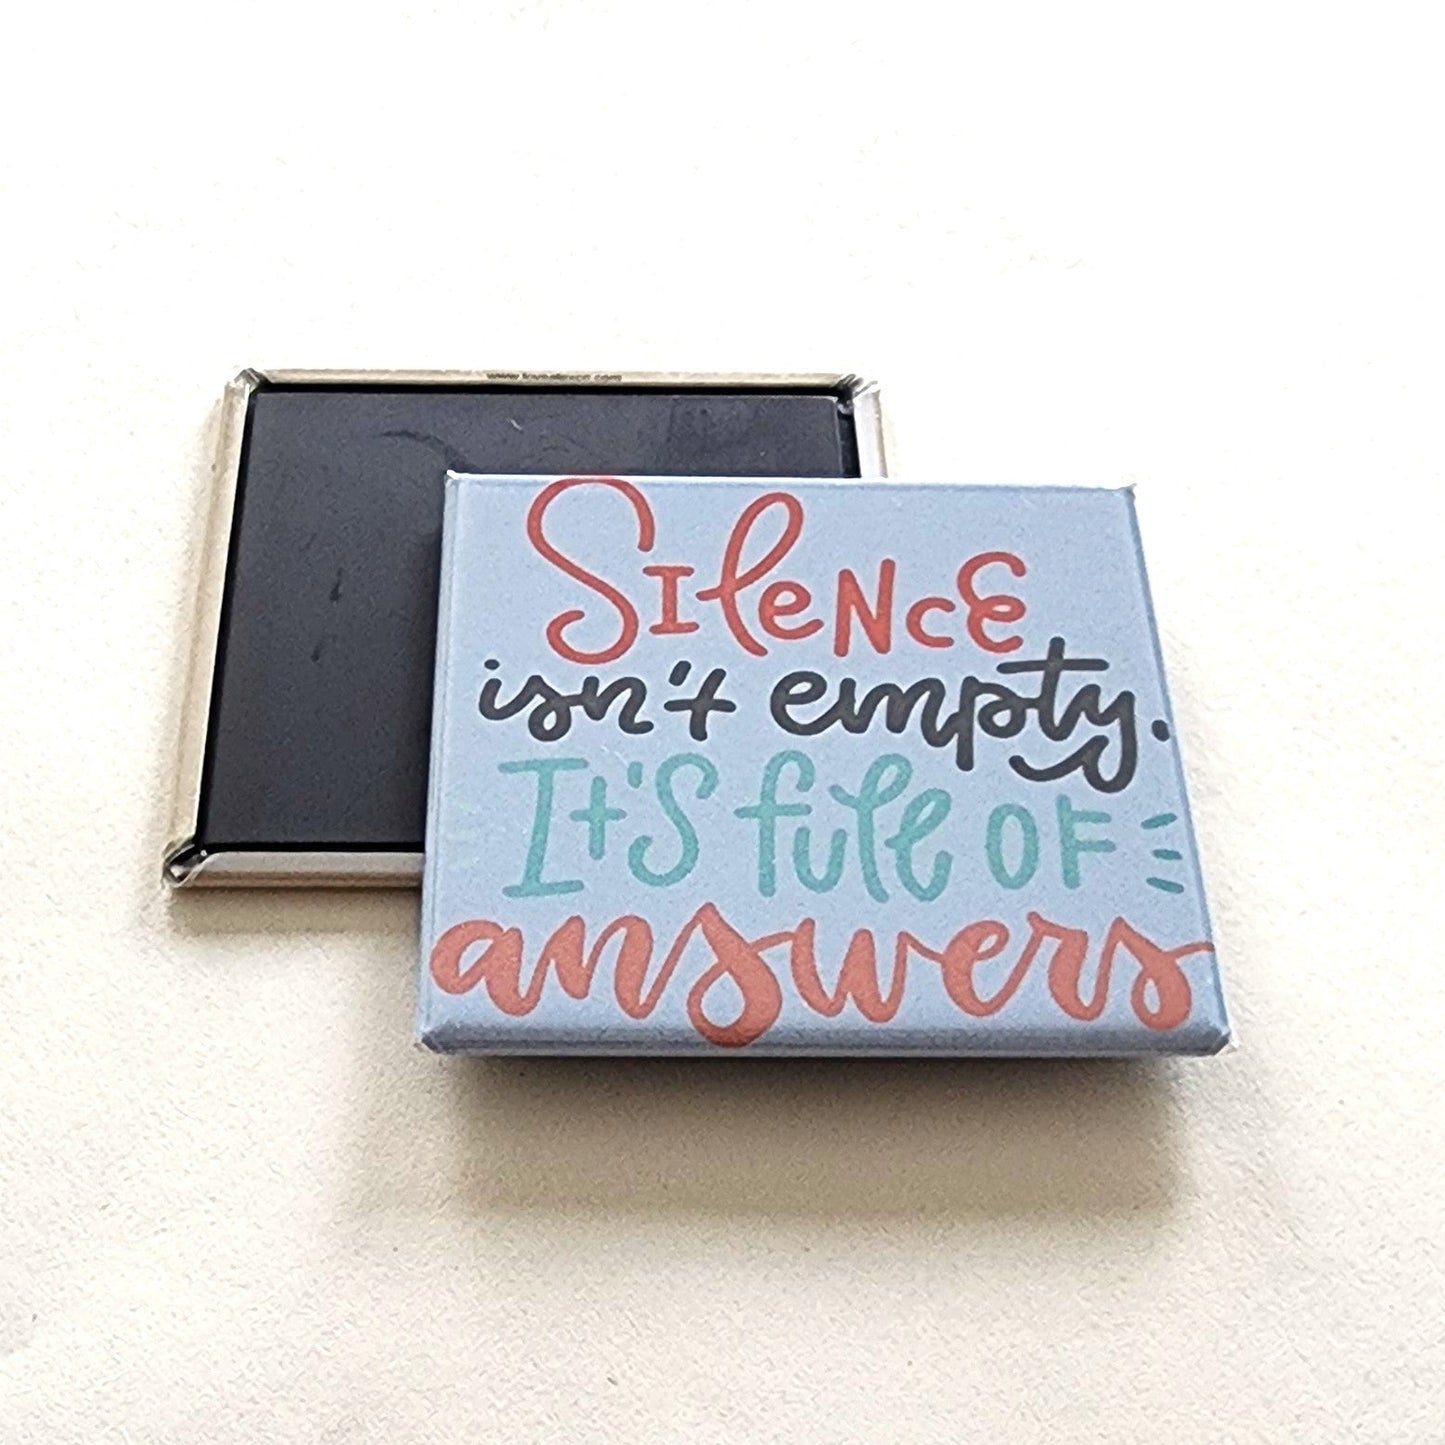 Silence
isn't empty.
It's full of
answers